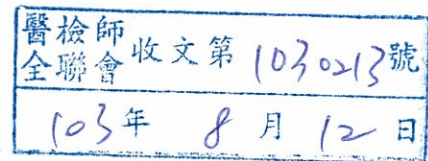 醫檢師全聯會收文第1030213號
103年8月12日